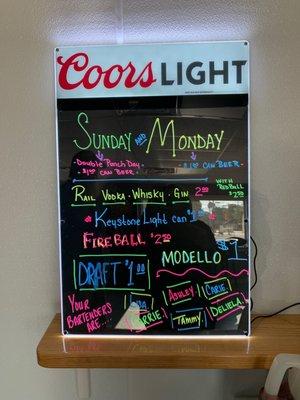 Coors LIGHT
SUNDAY AND MONDAY
-Double Punch Day -
- $1.00 CAN BEER -
- $1.00 CAN BEER -
RAIL VODKA · WHISKY · GIN 2.00
WITH REDBULL $2.50
Keystone Light can $1
FIREBALL $2.50
DRAFT $1.00
MODELLO $1
YOUR BARTENDERS ARE....
ASHLEY CARIE
CARRIE Tammy DELIELA